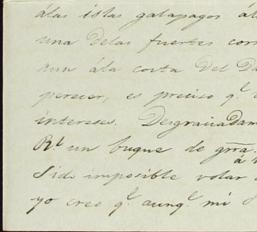 álas islas galapagos ál
una delas fuertes corr
aun ála costa del Da
perecer, es preciso q.e
intereses. Desgraciadam
R.l un buque de grra.
sido imposible volar á
yo creo q.e aunq.e mi